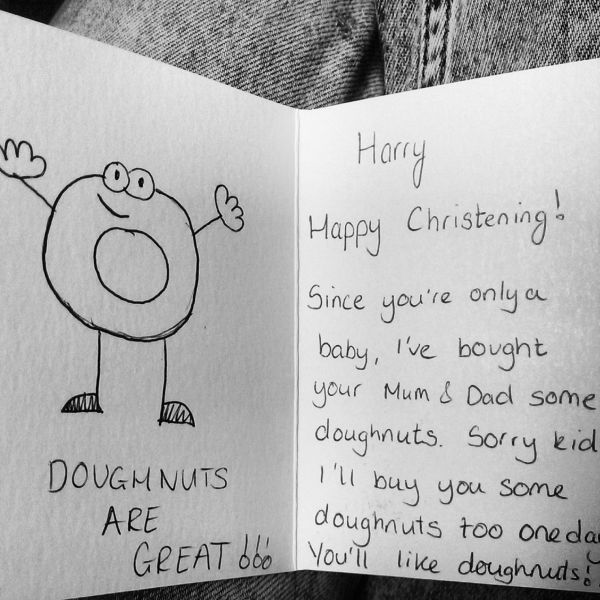 DOUGHNUTS
ARE
GREAT!!!
Harry
Happy Christening!
Since you're only a
baby, I've bought
your Mum & Dad some
doughnuts. Sorry kid
I'll buy you some
doughnuts too one day
You'll like doughnuts!